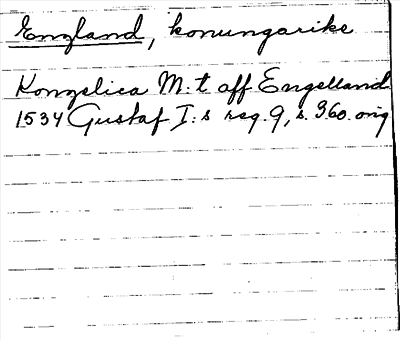 England, konungarike
Kongelica M:t aff Engelland
1534 Gustaf I:s reg. 9, s. 360. orig